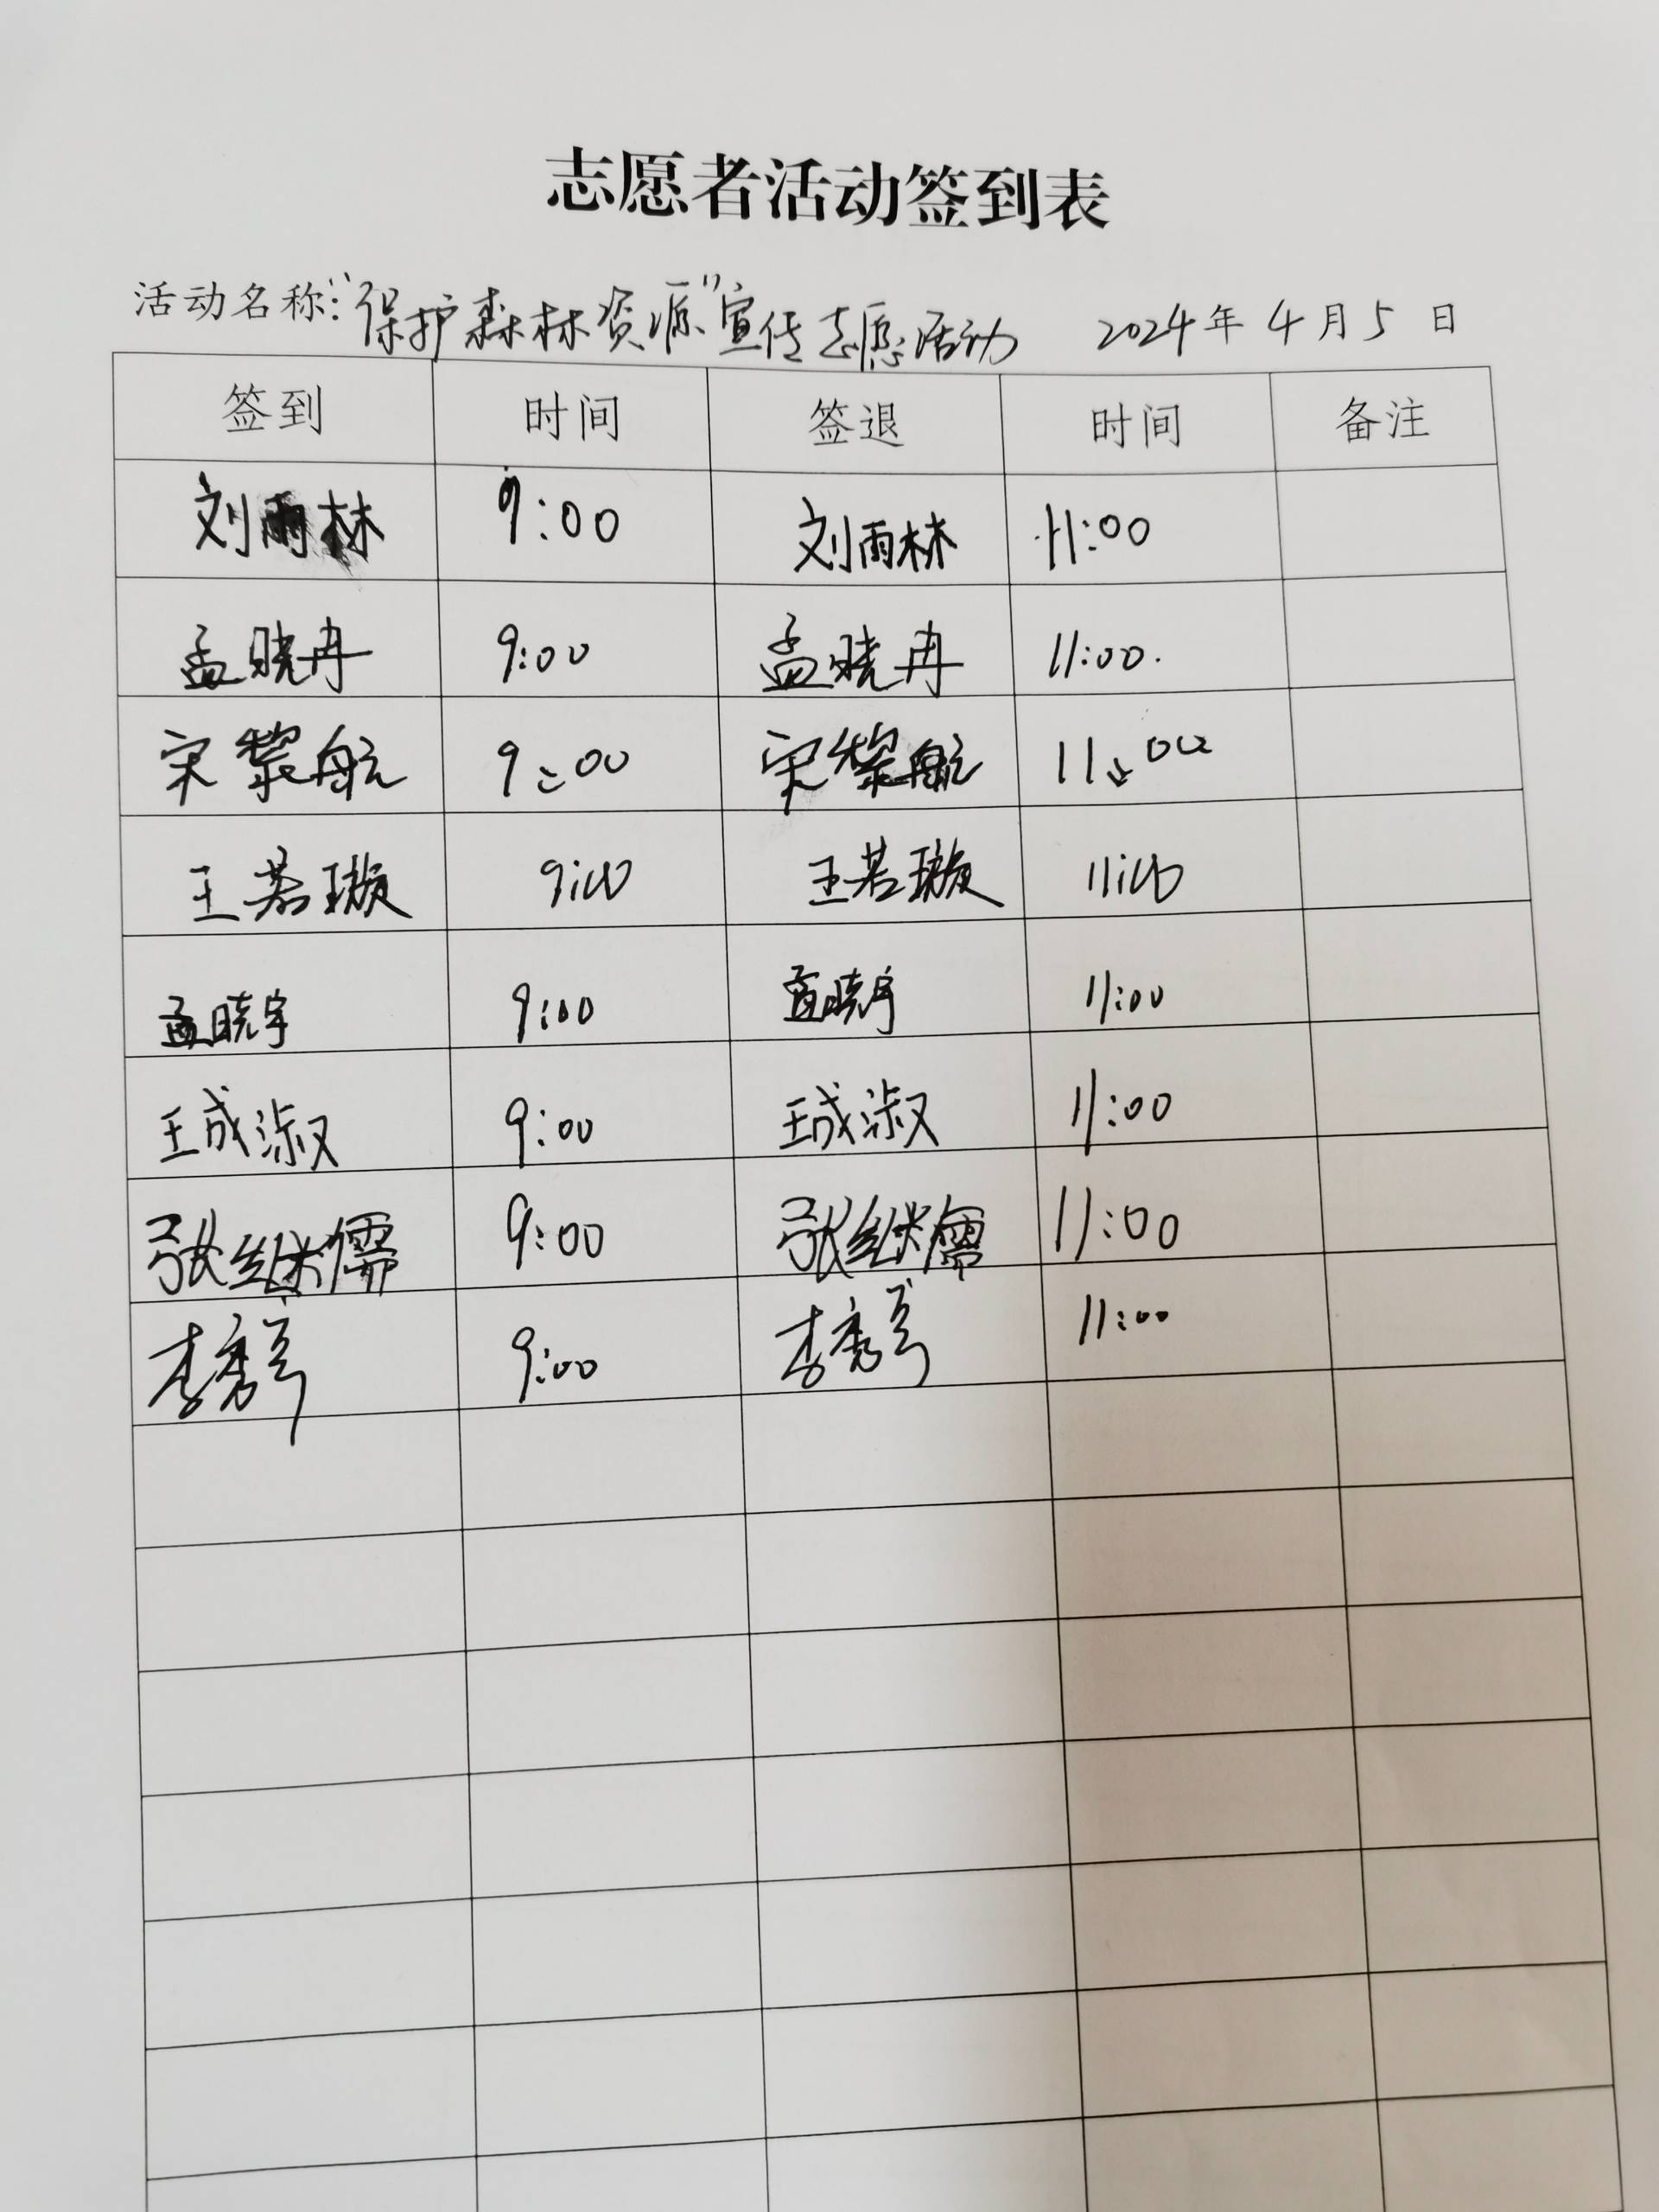 志愿者活动签到表
活动名称:“保护森林资源”宣传志愿活动 2024年4月5日
签到 时间 签退 时间 备注
刘雨林 9:00 刘雨林 11:00
孟晓冉 9:00 孟晓冉 11:00.
宋黎航 9:00 宋黎航 11:00
王若璇 9:00 王若璇 11:00
孟晓宇 9:00 孟晓宇 11:00
王成淑 9:00 王成淑 11:00
张继儒 9:00 张继儒 11:00
李秀 9:00 李秀 11:00